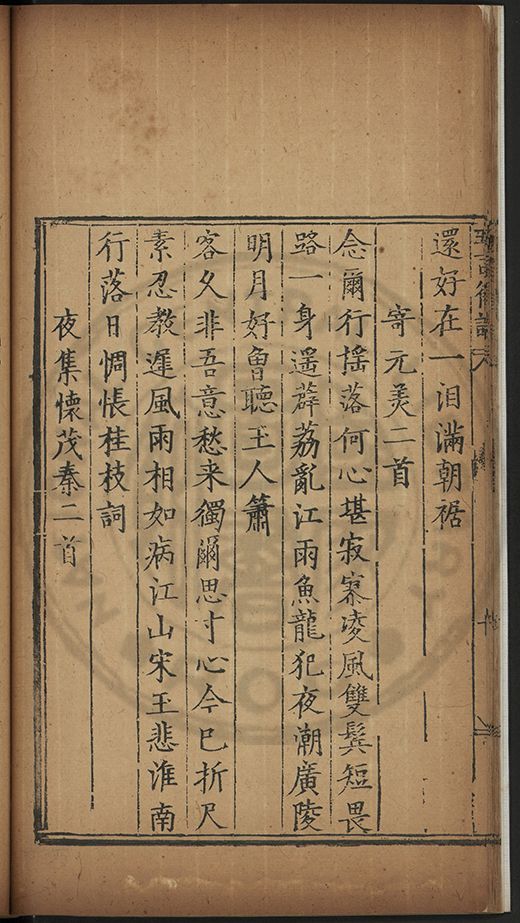 還好在一泪滿朝裾
寄元美二首
念爾行揺落何心堪寂寞凌風雙鬂短畏
路一身遥薜荔亂江雨魚龍犯夜潮廣陵
明月好曾聽玉人簫
客久非吾意愁来獨爾思寸心今已折尺
素忍教遲風雨相如病江山宋玉悲淮南
行落日惆悵桂枝詞
夜集懷茂秦二首